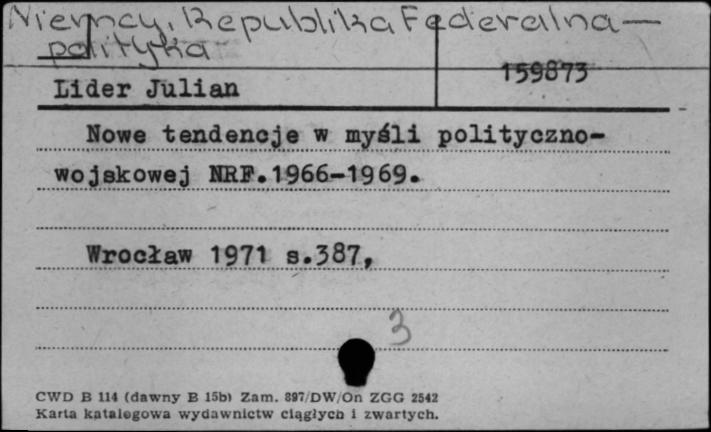 Niemcy, Republika Federalna —
polityka
159873
Lider Julian
Nowe tendencje w myśli polityczno-
wojskowej NRF.1966-1969.
Wrocław 1971 s.387,
3
CWD B 114 (dawny B 15b) Zam. 897/DW/On ZGG 2542
Karta katalogowa wydawnictw ciągłych i zwartych.